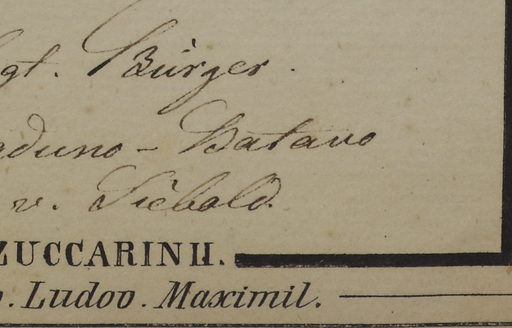 gt. Bürger.
duno - Batavo
v. Siebold.
ZUCCARINII.
. Ludov. Maximil.